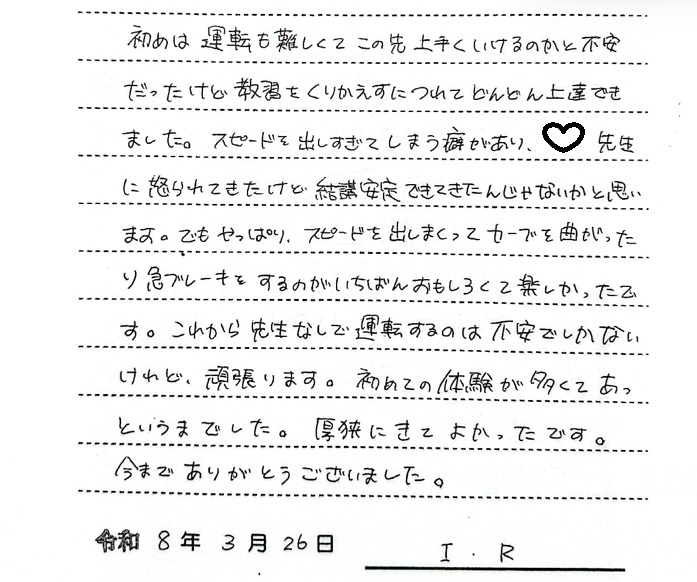 初めは運転も難しくてこの先上手くいけるのかと不安
だったけど教習をくりかえすにつれてどんどん上達でき
ました。スピードを出しすぎてしまう癖があり、♡先生
に怒られてきたけど結講安定できてきたんじゃないかと思い
ます。でもやっぱり、スピードを出しまくってカーブを曲がった
り急ブレーキをするのがいちばんおもしろくて楽しかったで
す。これから先生なしで運転するのは不安でしかない
けれど、頑張ります。初めての体験が多くてあっ
というまでした。厚狭にきてよかったです。
今までありがとうございました。
令和 8 年 3 月 26 日 I . R